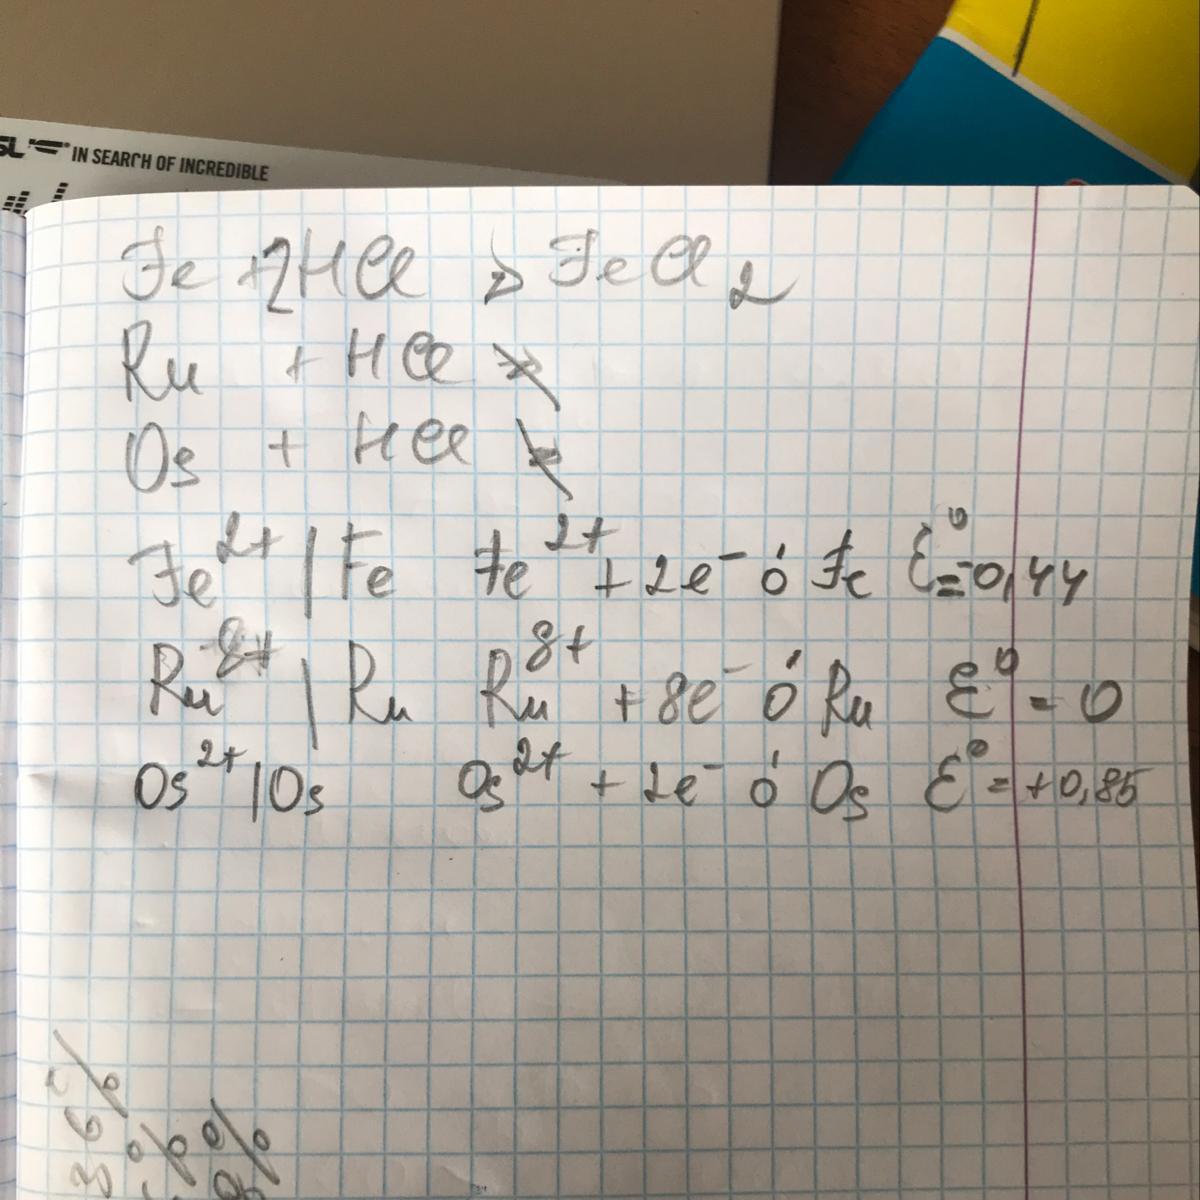 IN SEARCH OF INCREDIBLE
Fe +2HCl > FeCl2
Ru + HCl
Os + HCl
Fe²⁺ | Fe Fe²⁺ + 2e⁻ ó Fe Ɛ⁰=-0,44
Ru⁸⁺ | Ru Ru⁸⁺ + 8e⁻ ó Ru Ɛ⁰ = 0
Os²⁺ | Os Os²⁺ + 2e⁻ ó Os Ɛ⁰ = +0,85